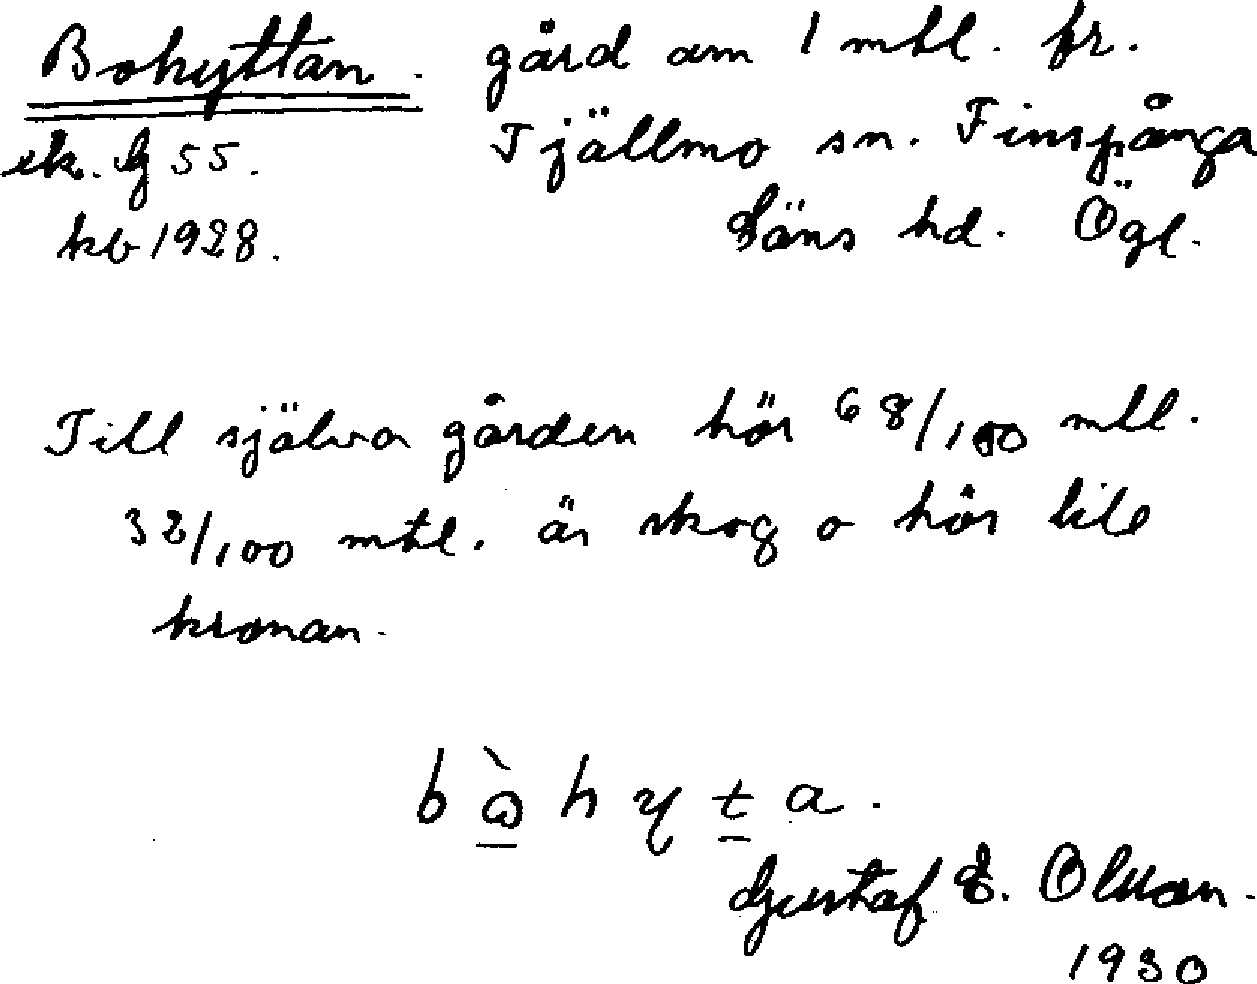 Bohyttan. gård om 1 mtl. fr.
ek. bl 55. Tjällmo sn. Finspånga
kb 1928. läns hd. Ögl.
Till själva gården hör 68/100 mtl.
32/100 mtl. är skog o hör till
kronan.
b ò h y t a.
Gustaf E. Olsson.
1930